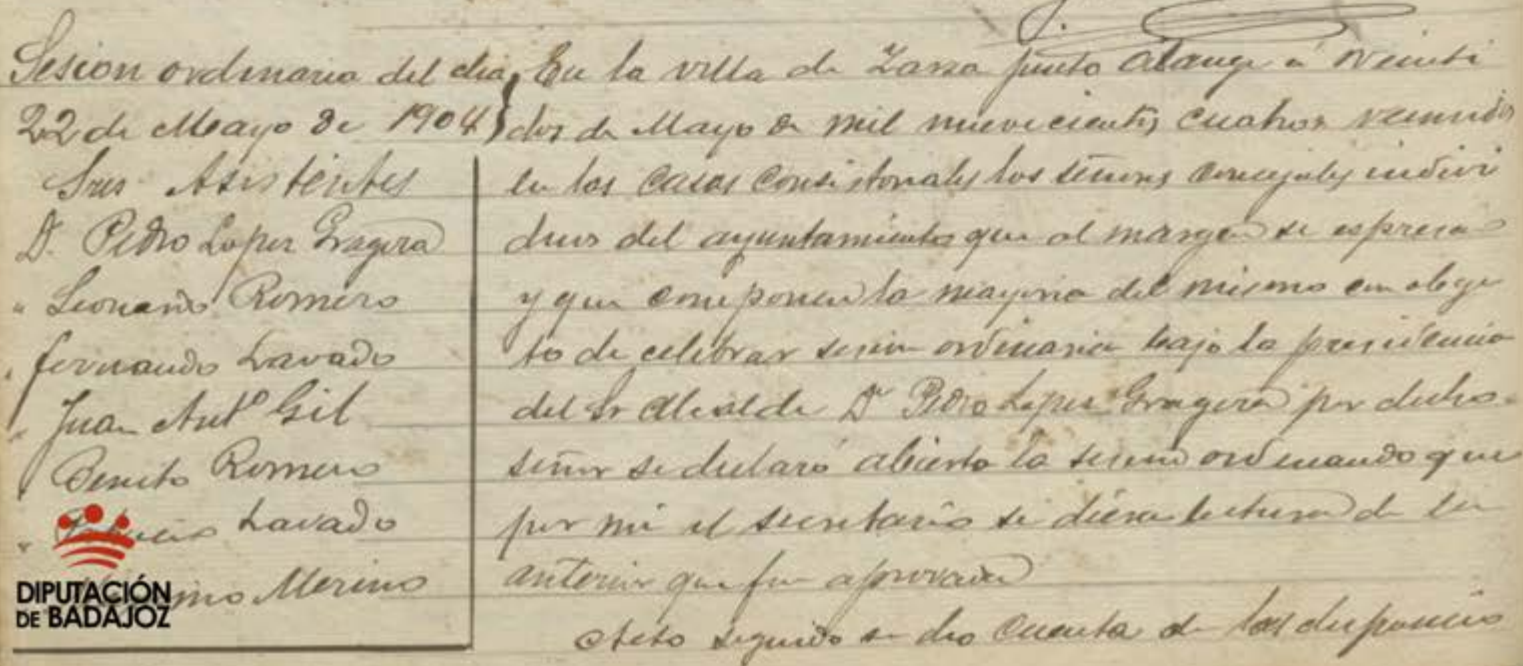 Sesion ordinaria del dia
22 de Mayo de 1904
Sres Asistentes
D. Pedro Lopez Gragera
" Leonardo Romero
" Fernando Lavado
" Juan Antº Gil
" Benito Romero
" Lavado
Merino
En la villa de Zarza junto Alange á veinti
dos de Mayo de mil nuevecientos cuatro, reunidos
en las Casas Consistoriales los señores concejales indivi
duos del ayuntamiento que al margen se espresan
y que componen la mayoria del mismo con obge
to de celebrar sesion ordinaria bajo la presidencia
del Sr Alcalde Dn Pedro Lopez Gragera por dicho
señor se declaró abierta la sesion ordenando que
por mi el secretario se diera lectura de la
anterior que fue aprovada
Acto seguido se dio cuenta de las disposicio
DIPUTACIÓN
DE BADAJOZ